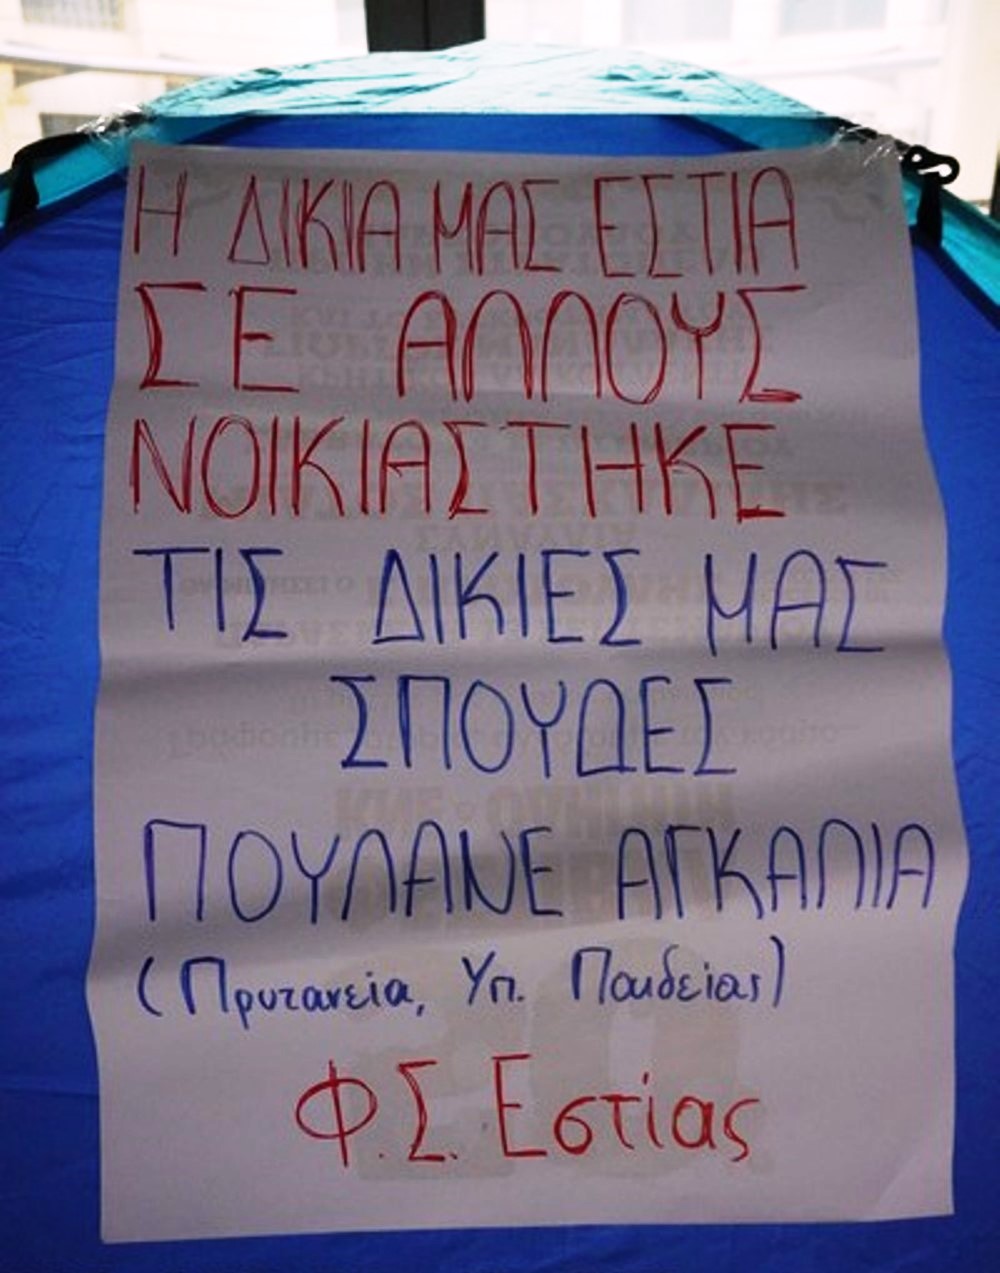 Η ΔΙΚΙΑ ΜΑΣ ΕΣΤΙΑ
ΣΕ ΑΛΛΟΥΣ
ΝΟΙΚΙΑΣΤΗΚΕ
ΤΙΣ ΔΙΚΙΕΣ ΜΑΣ
ΣΠΟΥΔΕΣ
ΠΟΥΛΑΝΕ ΑΓΚΑΛΙΑ
(Πρυτανεία, Υπ. Παιδείας)
Φ.Σ. Εστίας